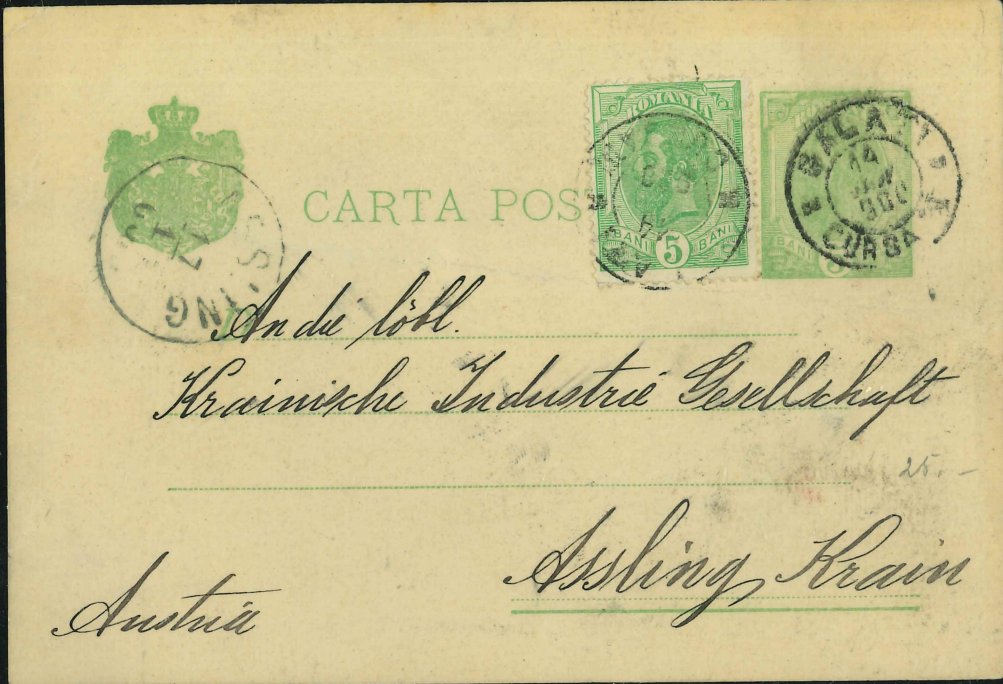 CARTA POS
ROMANIA
BANI 5 BANI
GALATI
CURSA
BANI 5
ASSLING
17
An die löbl.
Krainische Industrie Gesellschaft
25.-
Assling, Krain
Austria